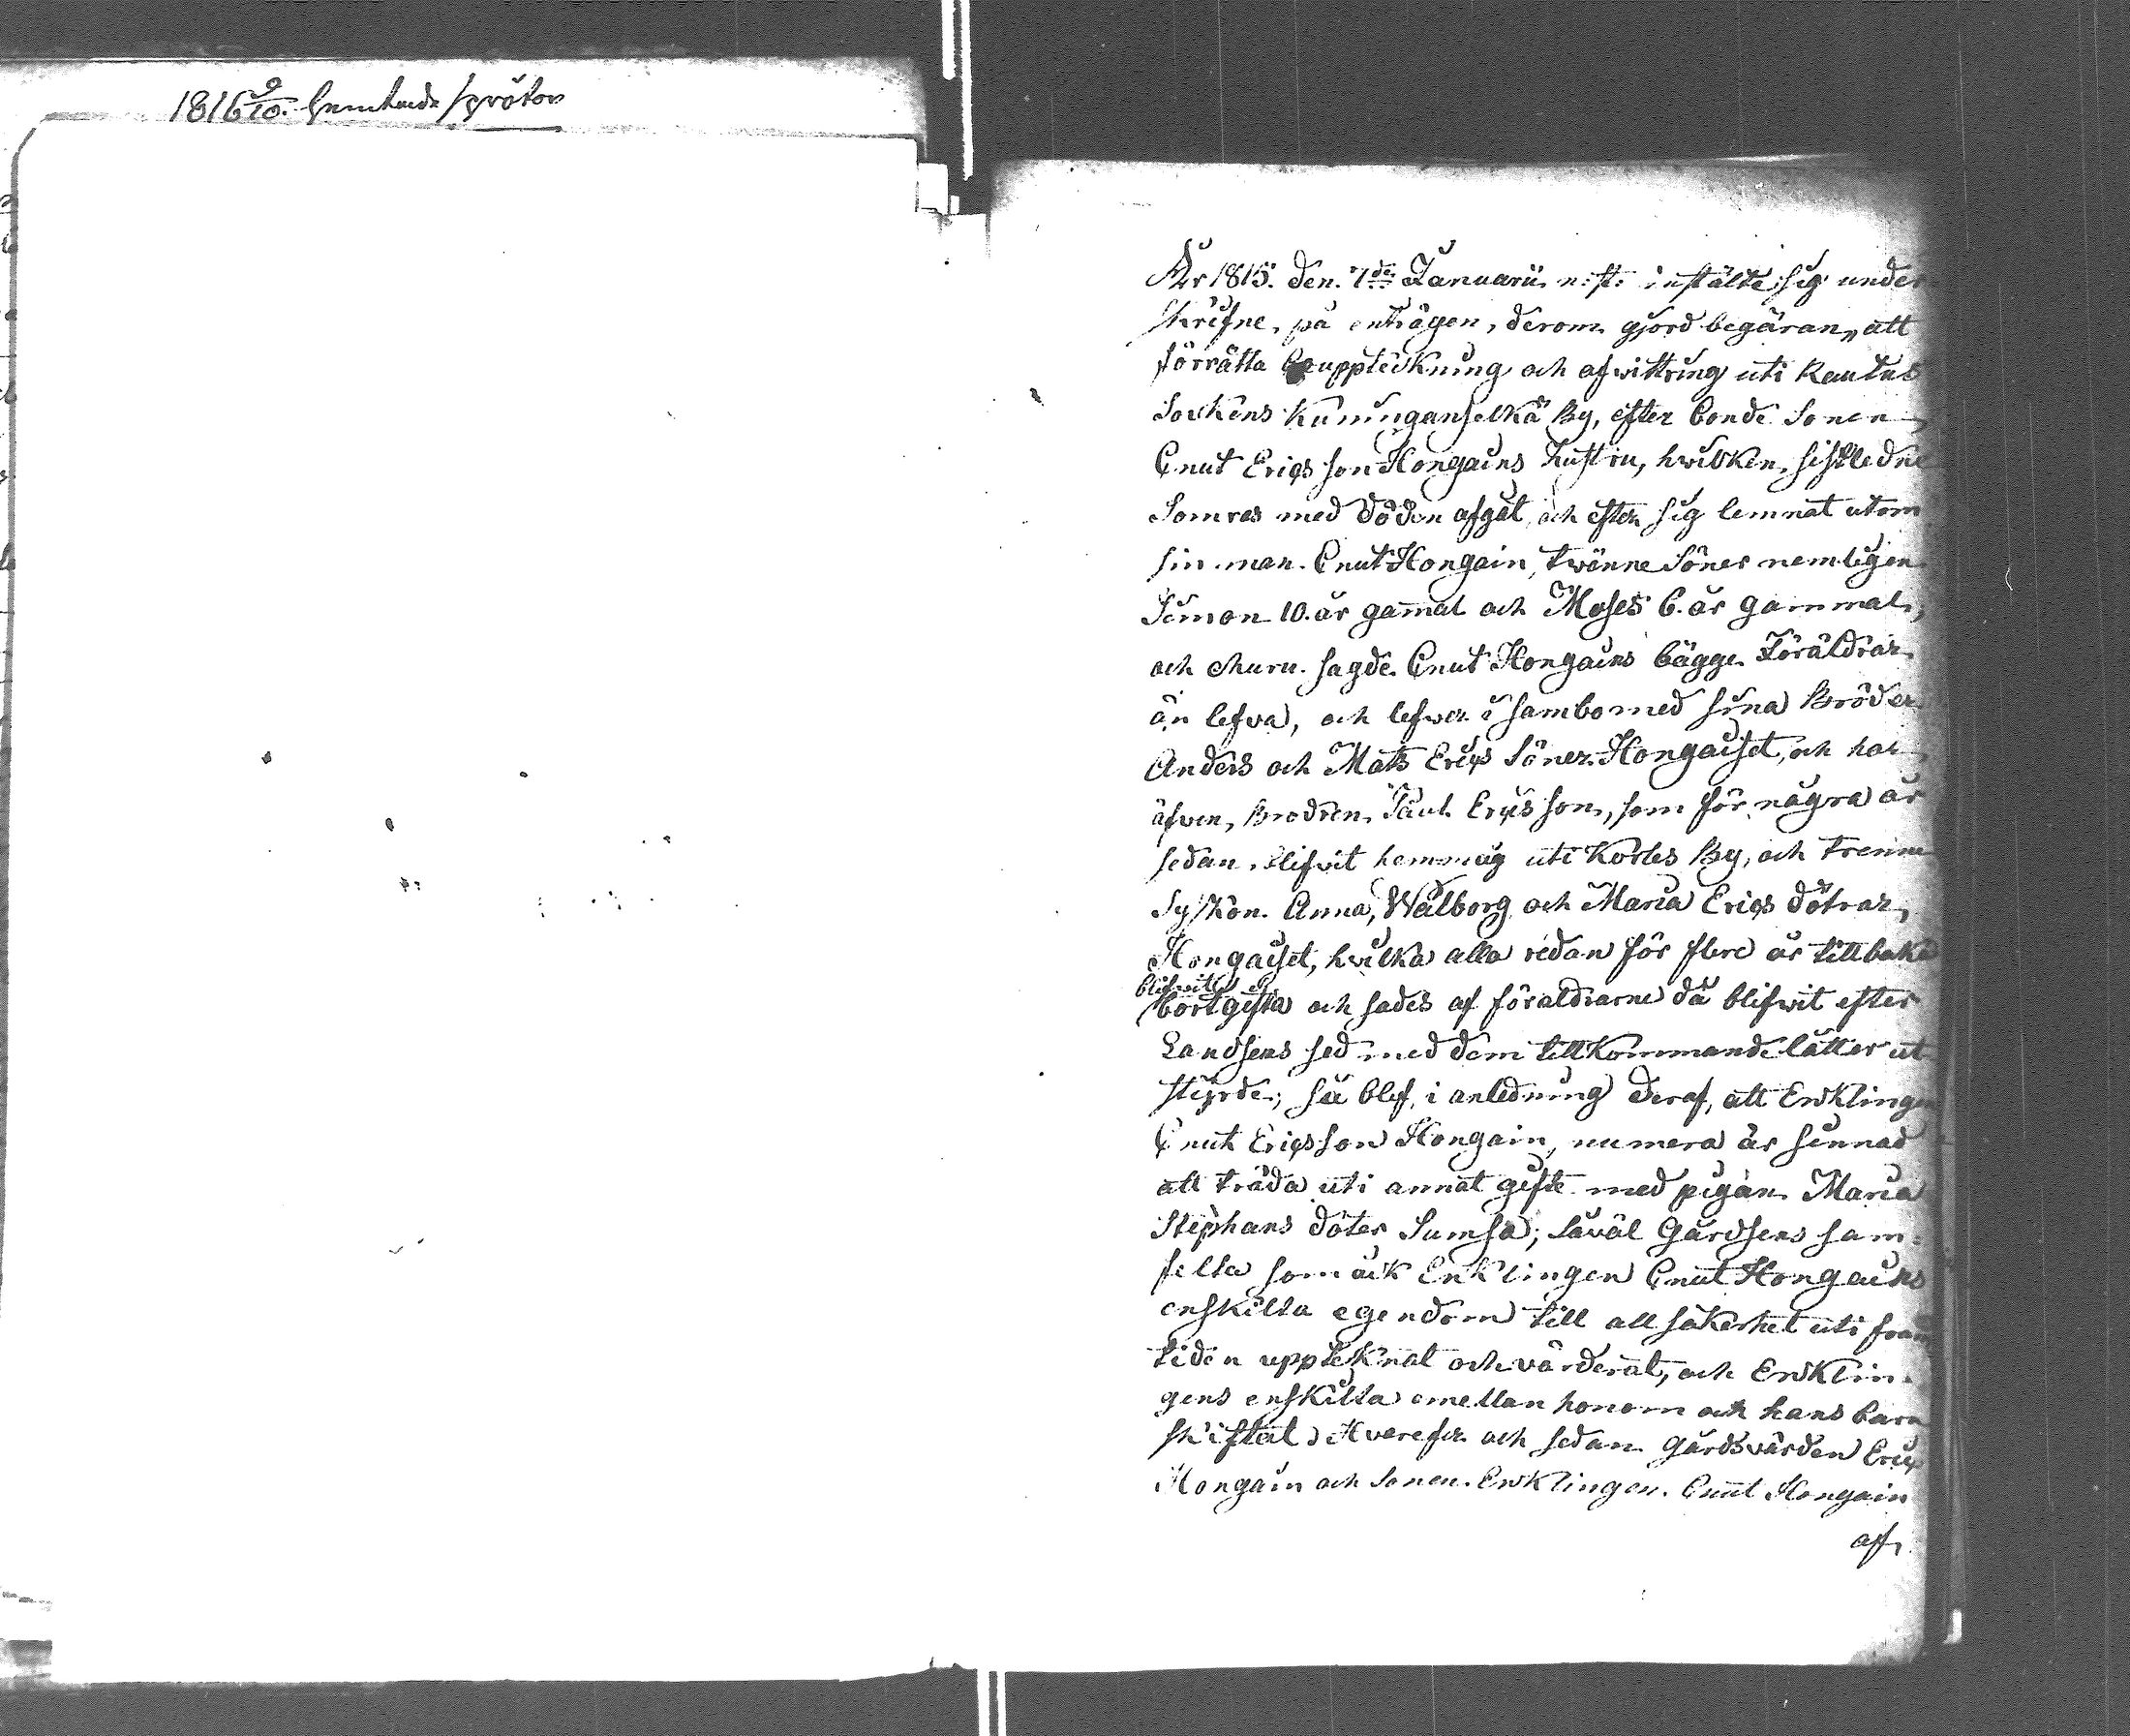 1816 9/10.
År 1815. den 7de Januarii n: st: instälte sig under
skrifne, på enträgen, derom gjord begäran, att
förrätta bouppteckning och afwittring uti Rautus
Sockens Kuninganselkä By, efter bonde Sonen
Cnut Eriqsson Hongains hustru, hwilken sistledne
Somras med döden afgåt, och efter sig lemnat utom
sin man Cnut Hongain, twänne Söner nemligen
Simon 10. år gamal och Moses 6. år gammal,
och ehuru sagde Cnut Hongains bägge Föräldrar
än lefva, och lefver i sambo med sina Bröder
Anders och Mats Eriqs Söner Hongaiset, och har
äfven, Brodren Paul Eriqsson, som för några år
sedan blifvit hemmåg uti Korles By, och trenne
Syskon Anna, Walborg och Maria Eriqs döttrar,
Hongaiset, hvilka alla redan för flere år tillbaka
blifwit
bortgifta och sades af föräldrarne då blifwit efter
Landsens sed med dem tillkommande låtter ut
styrde; så blef, i anledning deraf, att Enklingen
Cnut Eriqsson Hongain, numera är sinnad
att träda uti annat gifte med pigan Maria
Stephans doter Sumsa; såväl Gårdsens sam-
felta som äck Enklingen Cnut Hongains
enskilta egendom till all säkerhet uti fram
tiden upptecknat och värderat, och Enklin-
gens enskilta emellan honom och hans barn
skiftat; Hvarefter och sedan Gårdsvärden Eriq
Hongain och Sonen Enklingen Cnut Hongain
af